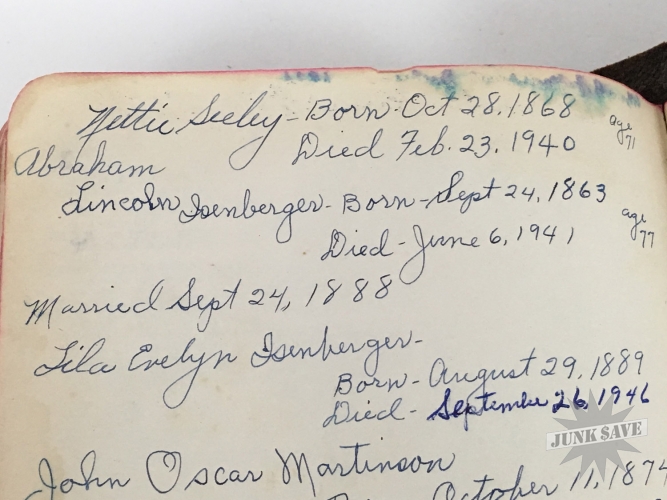 Nettie Seeley - Born - Oct 28, 1868 age 71
Died Feb. 23, 1940
Abraham
Lincoln Isenberger - Born - Sept 24, 1863 age 77
Died - June 6, 1941
Married Sept 24, 1888
Lila Evelyn Isenberger -
Born - August 29, 1889
Died - September 26, 1946
JUNK SAVE
John Oscar Martinson
October 11, 1874